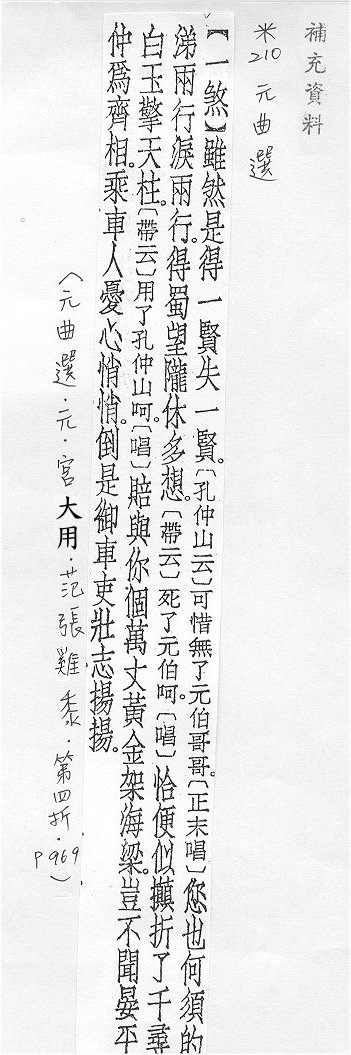 補充資料
米210 元曲選
【一煞】雖然是得一賢失一賢。〔孔仲山云〕可惜無了元伯哥哥。〔正末唱〕您也何須的
涕兩行淚兩行。得蜀望隴休多想。〔帶云〕死了元伯呵。〔唱〕恰便似攧折了千尋
白玉擎天柱。〔帶云〕用了孔仲山呵。〔唱〕賠與你個萬丈黃金架海梁。豈不聞晏平
仲爲齊相。乘車人憂心悄悄。倒是御車吏壯志揚揚。
(元曲選·元·宮大用·范張雞黍·第四折·P969)